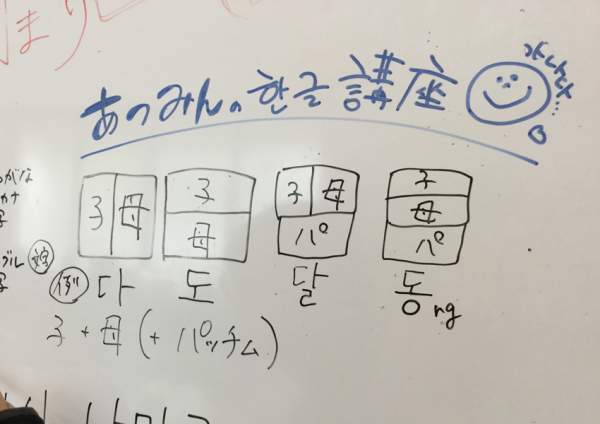 まり
あつみんの한글講座
가나다...
がな
カナ
子 母 子 母 子 母 パ 子 母 パ
グル
例 다 도 달 동 ng
子 + 母 (+ パッチム)